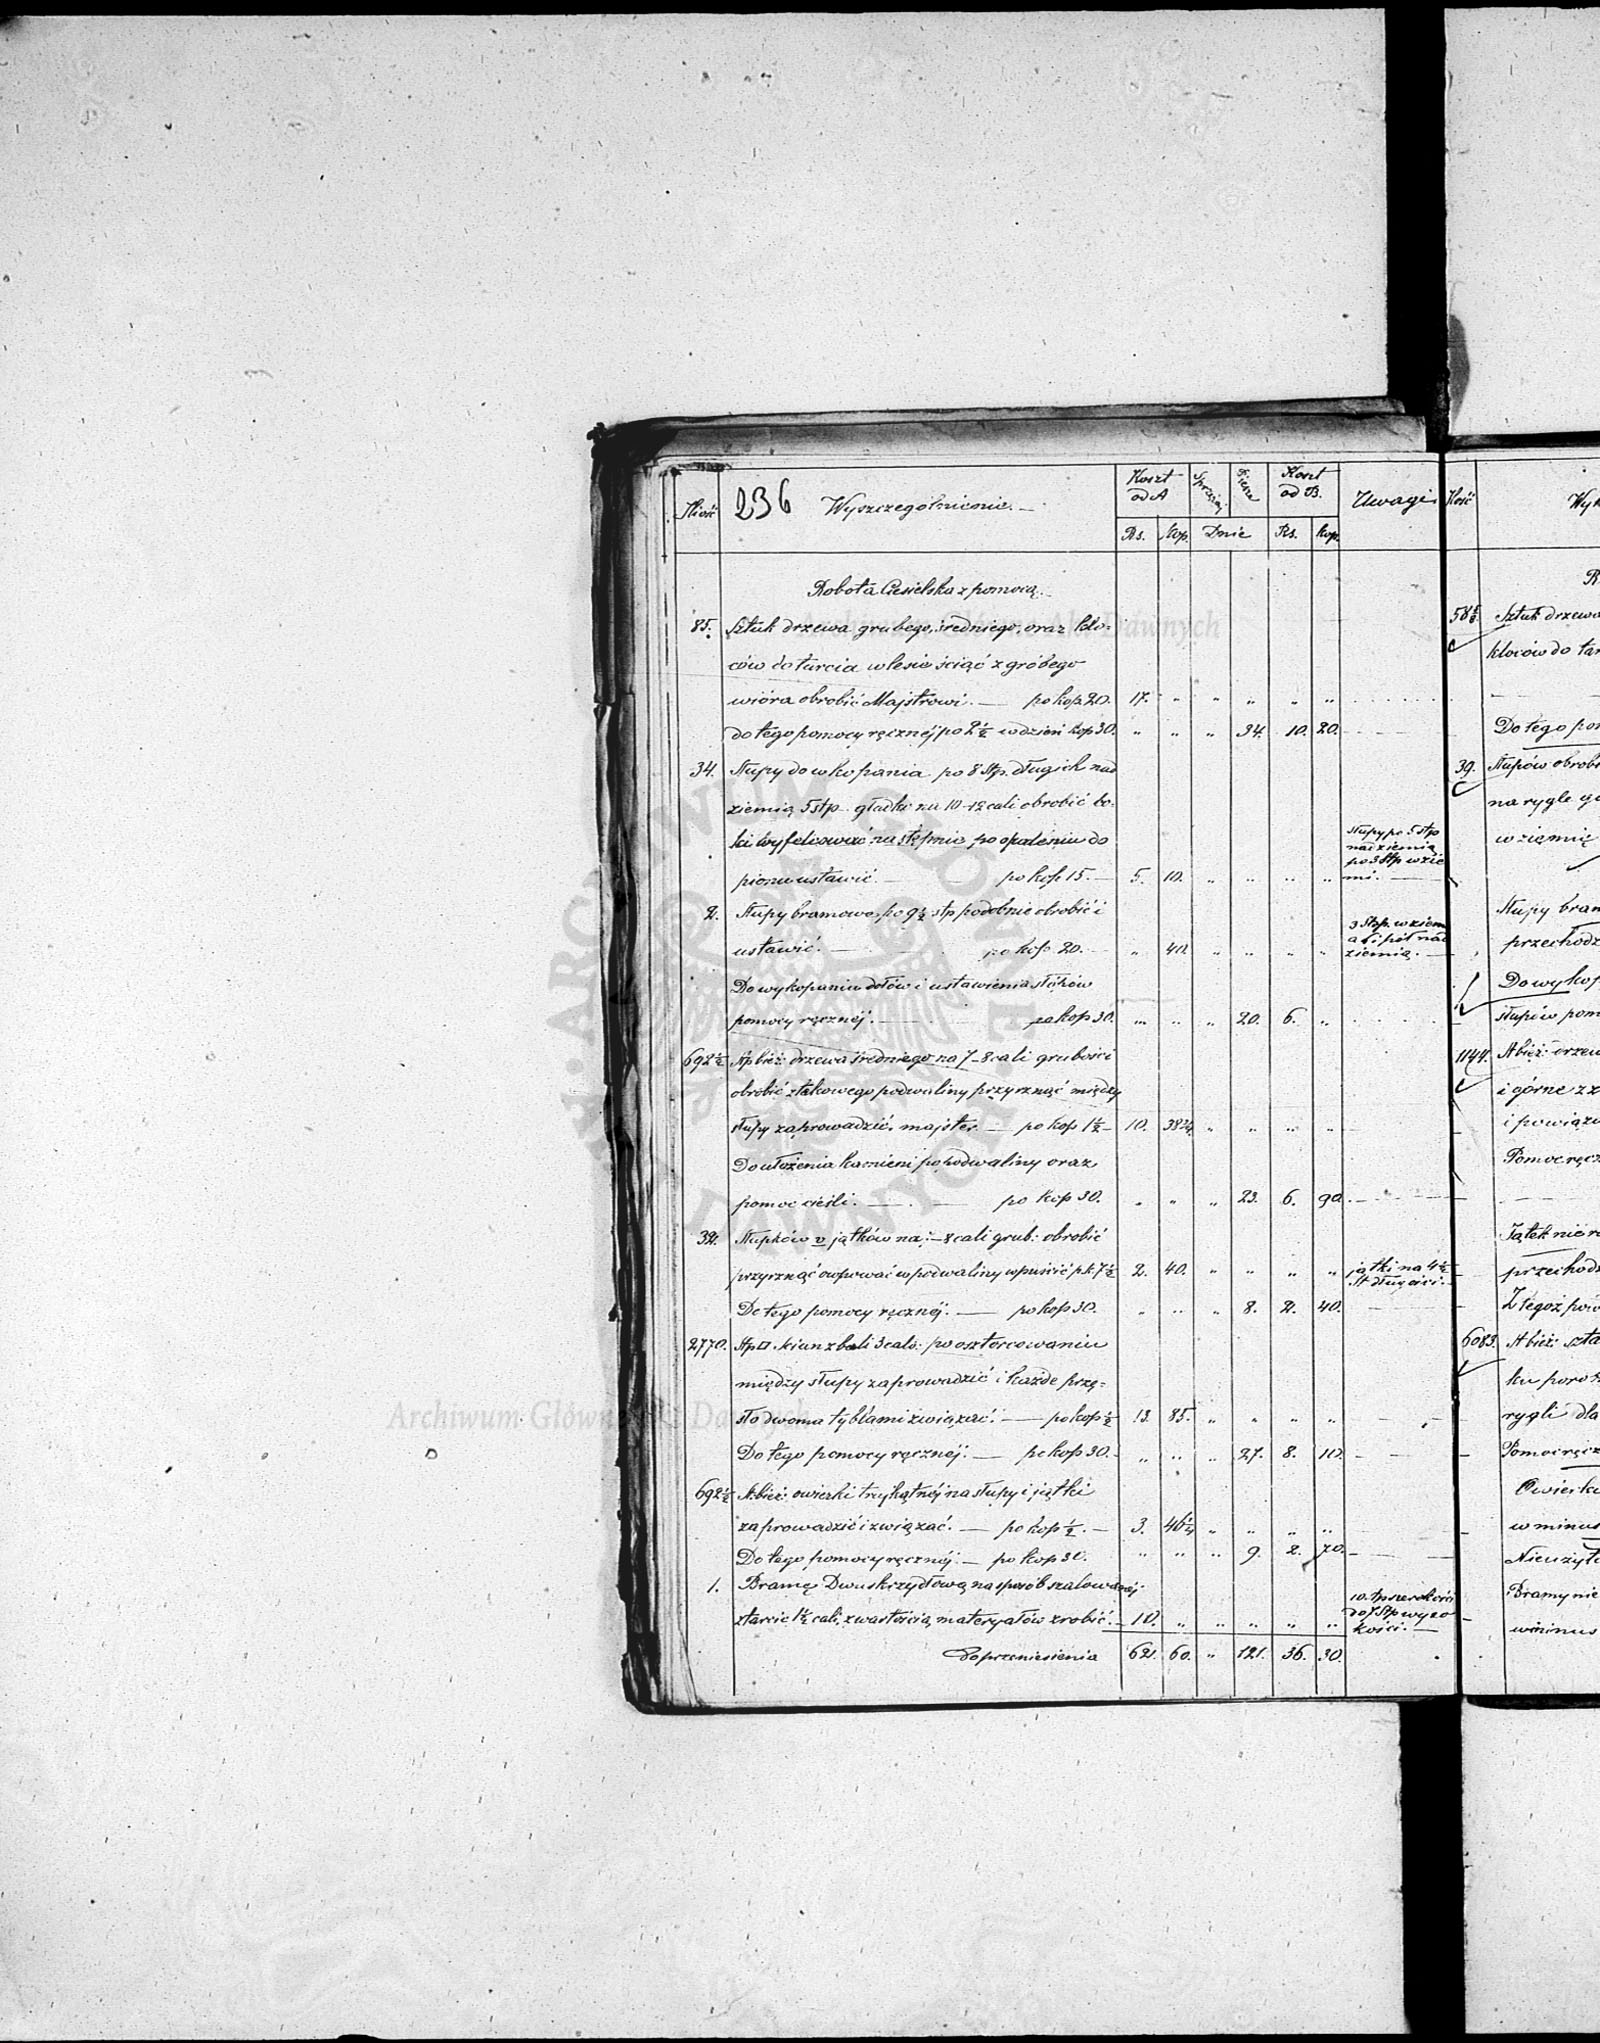 Ilość 236 Wyszczególnienie. Koszt od A Sprzęż. Piesze Koszt od B. Uwagi
Rs. Kop. Dnie Rs. Kop.
Robota Ciesielska z pomocą.
85. Sztuk drzewa grubego, średniego, oraz klo-
ców do tarcia w lesie ściąć z gróbego
wióra obrobić Majstrowi. — po kop 20. 17. " " " " "
do tego pomocy ręcznéj po 2½ w dzień kop 30. " " " 34. 10. 20.
34. Słupy do wkopania po 8 Stp. długich nad
ziemią 5 stp gładko na 10-12 cali obrobić bo-
ki wyfelcować następnie po opaleniu do
pionu ustawić. — po kop 15. — 5. 10. " " " " słupy po 5 stp nad ziemią po 3 Stp w zie mi. —
2. Słupy bramowe, po 9½ stp podobnie obrobić i
ustawić. — po kop 20. — " 40. " " " " 3 Stp. w ziem a 6 i pół nad ziemią. —
Do wykopania dołów i ustawienia słupów
pomocy ręcznéj. — po kop 30. " " " 20. 6. "
692½ Stp bież: drzewa średniego na 7-8 cali grubości
obrobić z takowego podwaliny przyrznąć między
słupy zaprowadzić. majster — po kop 1½ — 10. 38¾ " " " "
Do ułożenia kamieni po podwaliny oraz
pomoc cieśli. — po kop 30. " " " 23. 6. 90.
32. Słupków v jątków na 7-8 cali grub: obrobić
przyrznąć w podwaliny wpuścić p.k 7½ 2. 40. " " " " jątki na 4½ St długości. —
Do tego pomocy ręcznéj. — po kop 30. " " " 8. 2. 40.
2770. Stp □ ścian z bali 3 calo: po osztorcowaniu
między słupy zaprowadzić i każde przę-
sło dwoma tyblami związać. — po kop ½ 13. 85. " " " "
Do tego pomocy ręcznéj. — po kop 30. — " " " 27. 8. 10.
692½ St. bież: owierki trzykątnéj na słupy i jątki
zaprowadzić i związać. — po kop ½. — 3. 46¼ " " " "
Do tego pomocy ręcznéj. — po kop 30. " " " 9. 2. 70.
1. Bramę Dwuskrzydłową na sposób szalowanéj
z tarcic 1½ cali, z wartością materyałów zrobić. — 10. " " " " " 10. stp szerokości do 7 Stp wyso kości. —
Do przeniesienia 62. 60. " 121. 36. 30.
Ilość
58⅚ Sztuk drzewa
kloców do tar
Do tego po
39. Słupów obrob
na rygle
w ziemię
Słupy bram
przechodz
Do wykop
słupów pom
1144. St bież: drzew
i górne z
i powiąz
Pomoc ręcz
Jątek nie
przechodz
Z tegoż pow
6083. St bież: szta
ku poro
rygli dla
Pomoc ręcz
Owierki
w minus
Nieużyt
Bramy nie
w minus
Archiwum Główne Akt Dawnych
Archiwum Główne Akt Dawnych